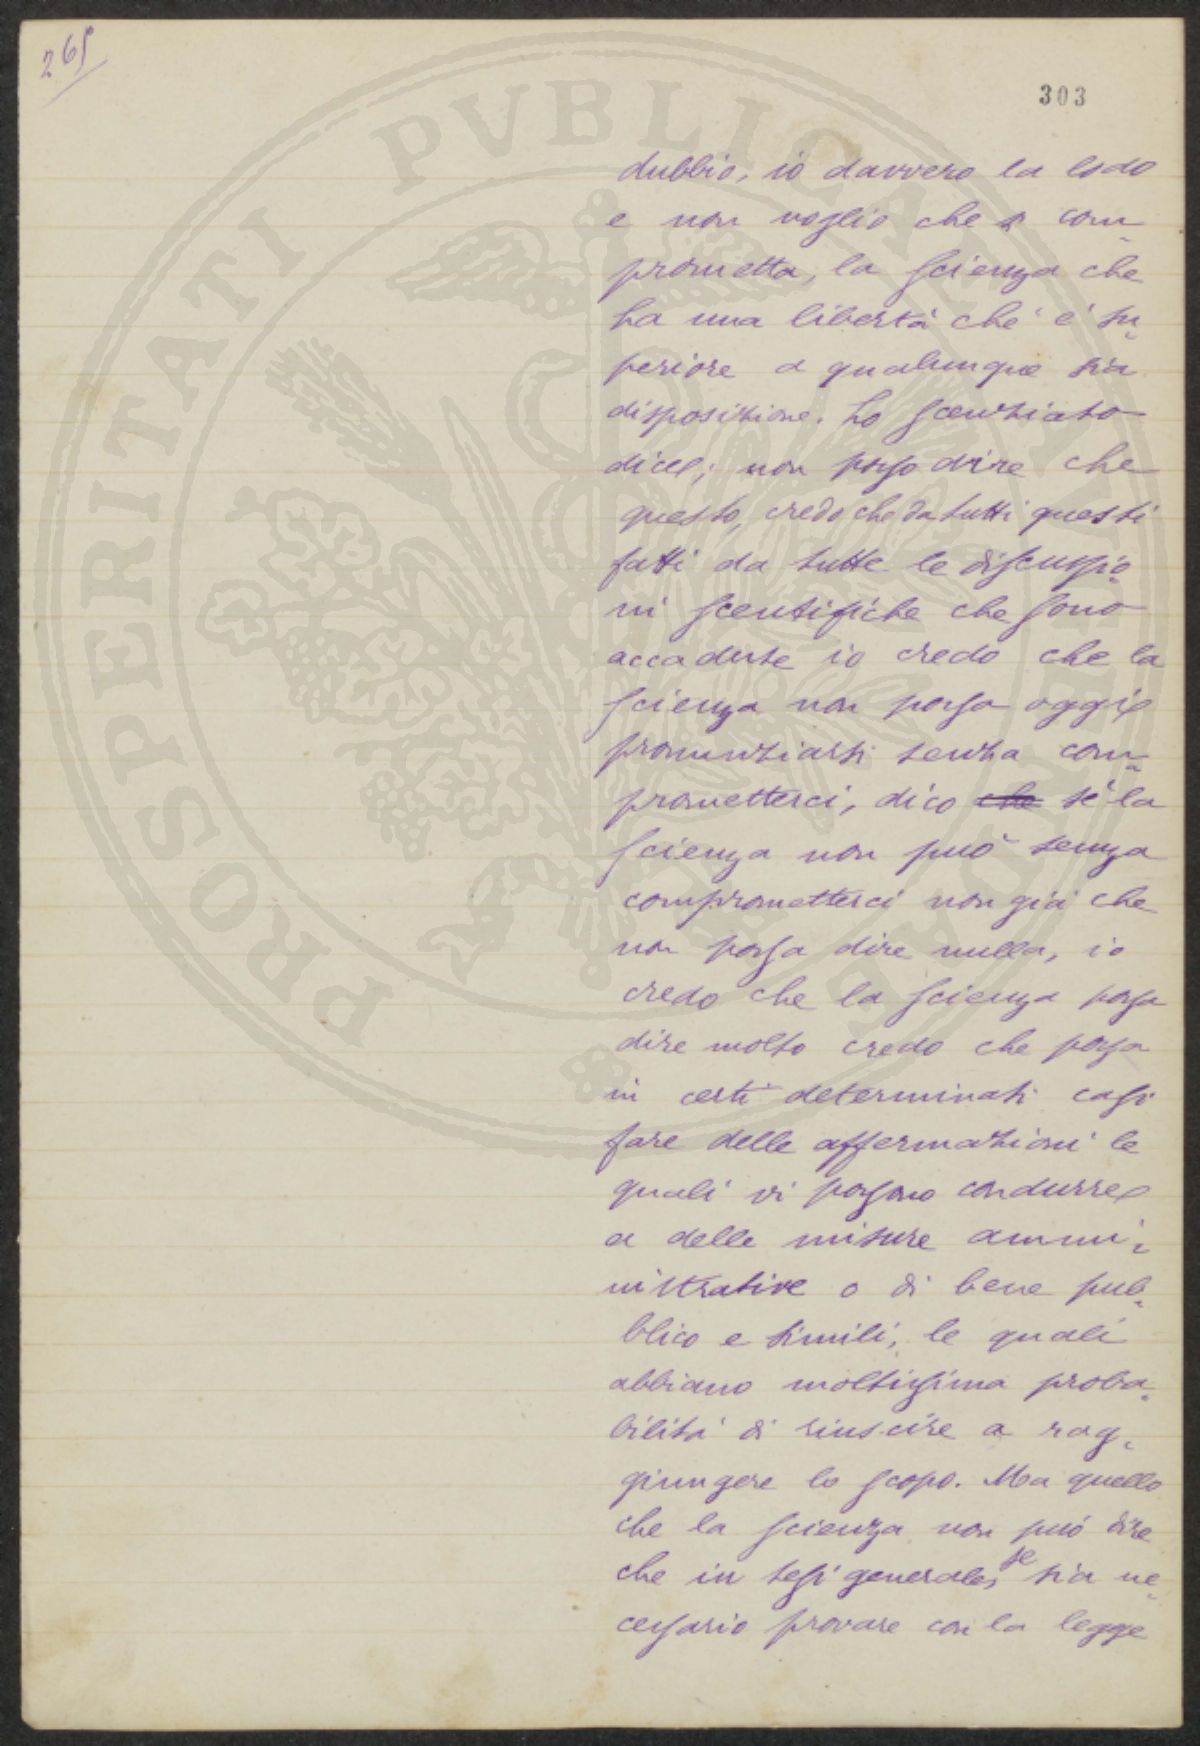 265
303
PUBLICAE VENIENDAE PROSPERITATI
dubbio, io davvero la lodo
e non voglio che s com=
prometta, la scienza che
ha una libertà che è su=
periore a qualunque sia
disposizione. Lo scenziato
dice; non posso dire che
questo, credo che da tutti questi
fatti da tutte le discussio=
ni scentifiche che sono
accadute io credo che la
scienza non possa oggi
pronunziarsi senza com=
prometterci, dico che se la
scienza non può senza
comprometterci non già che
non possa dire nulla, io
credo che la scienza possa
dire molto credo che possa
in certi determinati casi
fare delle affermazioni le
quali vi possono condurre
a delle misure ammi=
nistrative o di bene pub=
blico e simili, le quali
abbiano moltissima proba=
bilità di riuscire a rag=
giungere lo scopo. Ma quello
che la scienza non può dire
che in tesi generale, se sia ne=
cessario provare con la legge